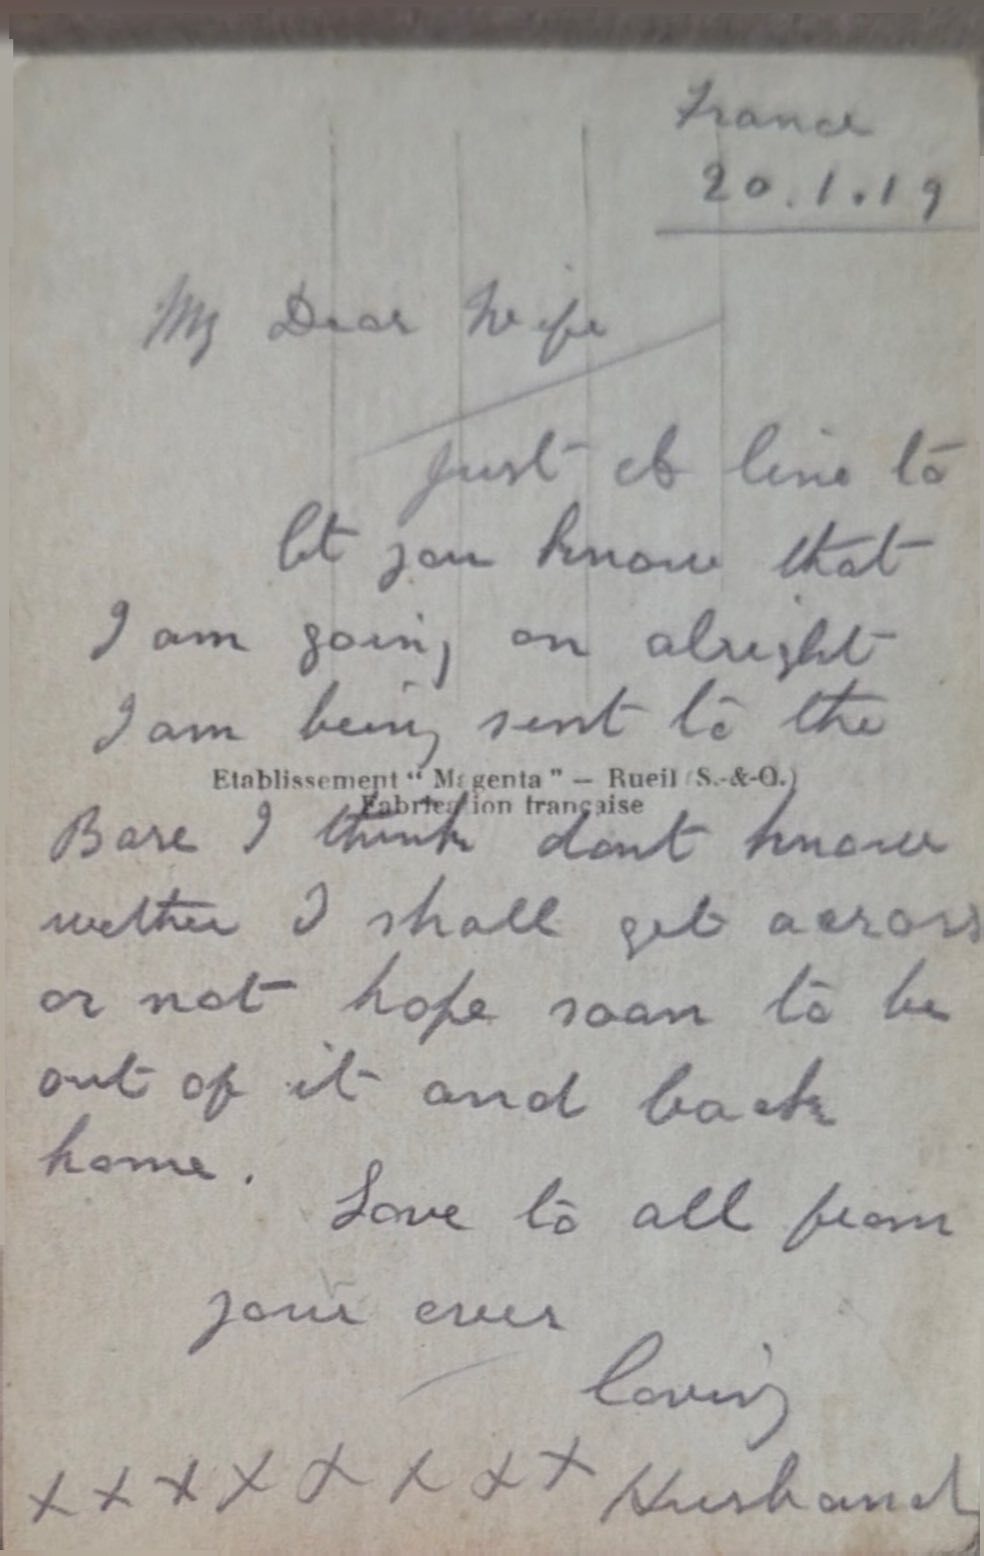 France
20.1.19
My Dear Wife
Just a line to
let you know that
I am going on alright
I am being sent to the
Etablissement "Magenta" — Rueil (S.-&-O.)
Fabrication française
Base I think dont know
wether I shall get across
or not hope soon to be
out of it and back
home.
Love to all from
your ever
loving
x x x x x x x x Husband